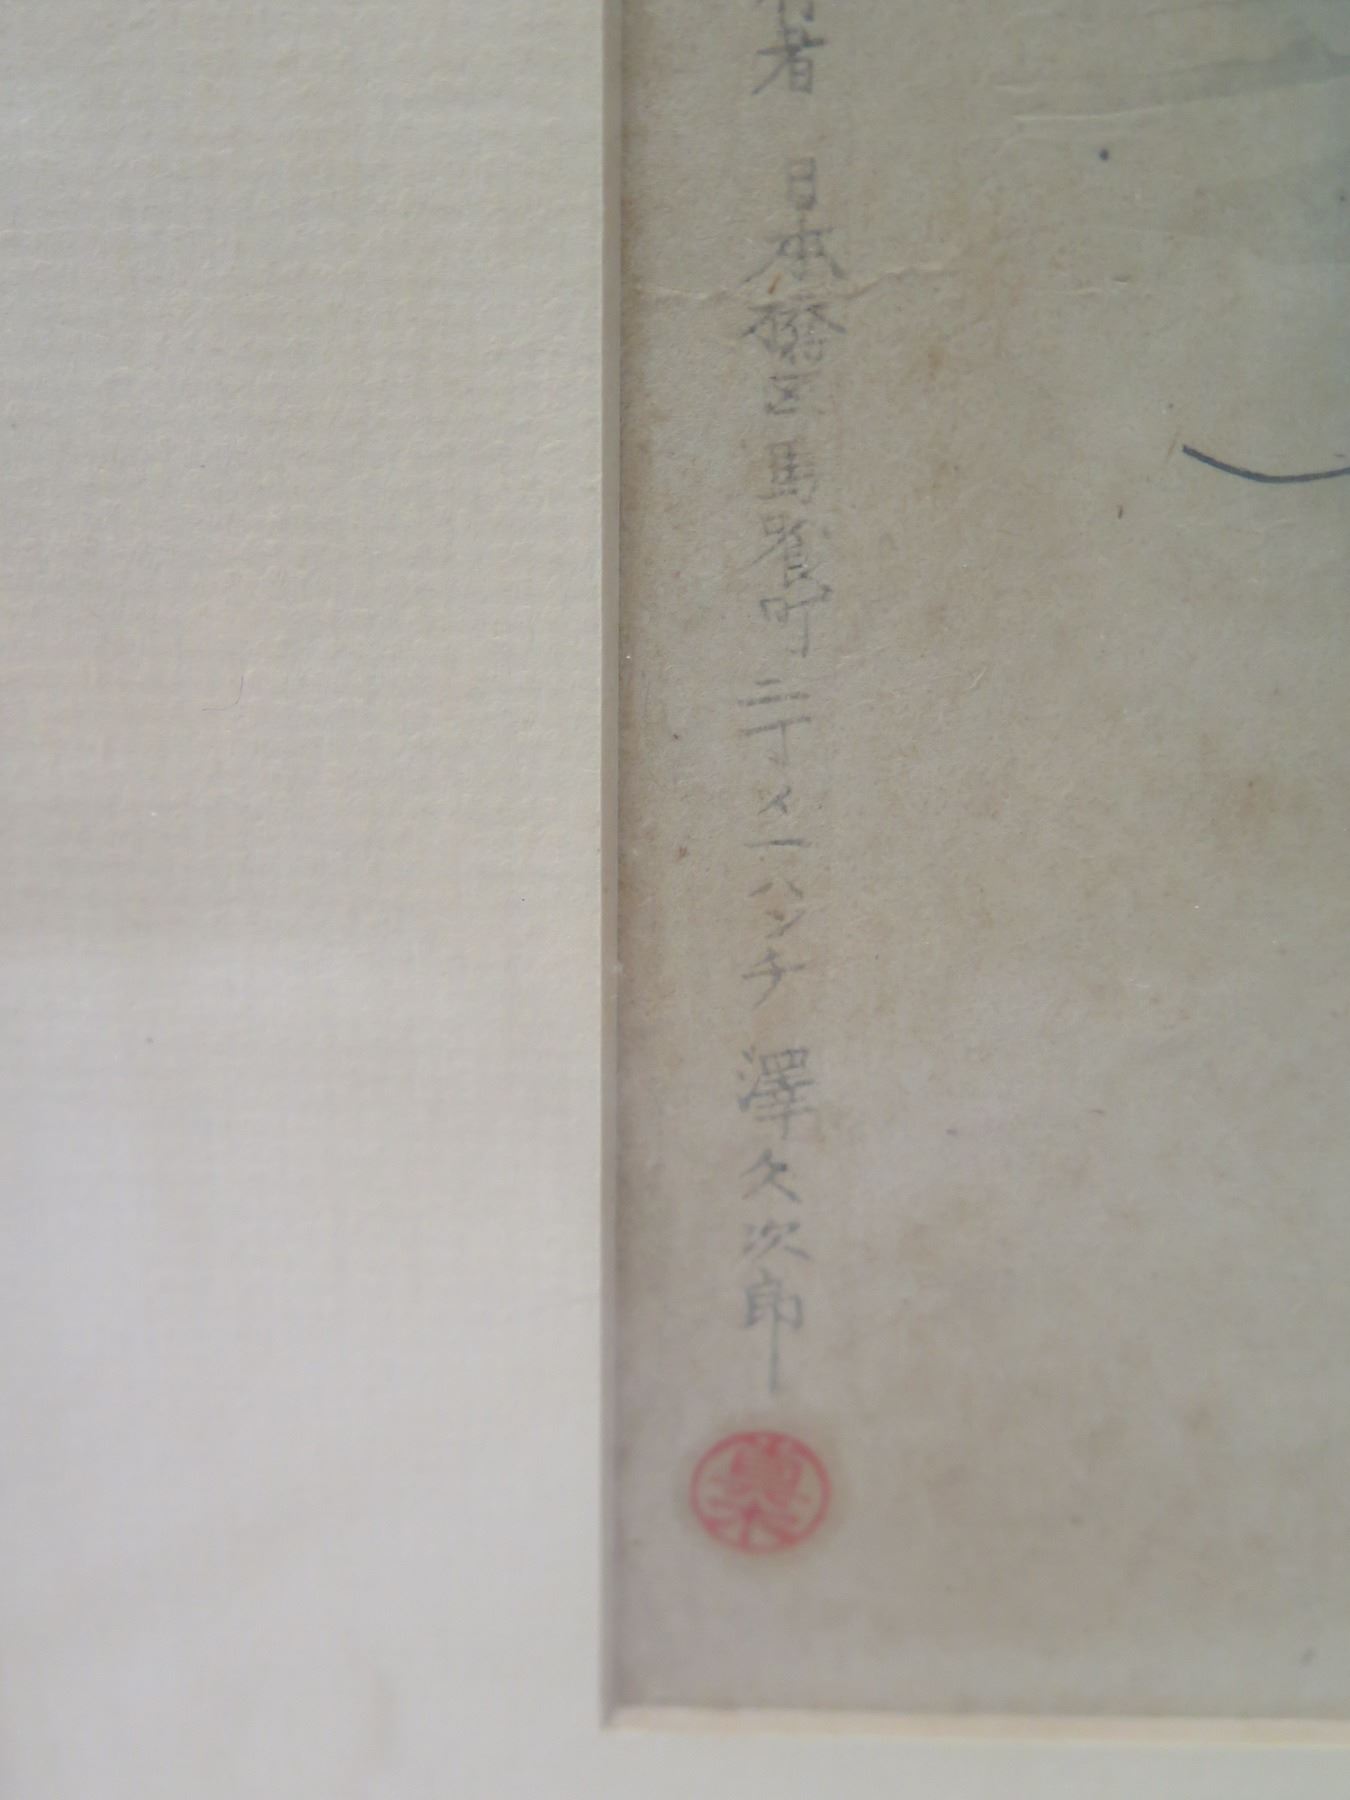 者 日本橋区馬喰町二丁メ一ハンチ 澤久次郎